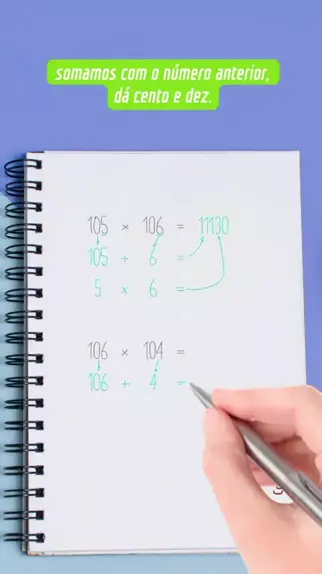 somamos com o número anterior,
dá cento e dez.
105 × 106 = 11130
105 + 6 =
5 × 6 =
106 × 104 =
106 + 4 =